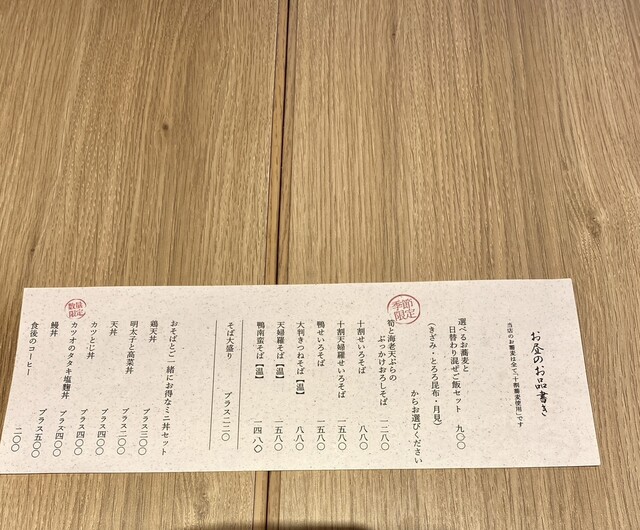 お昼のお品書き
当店のお蕎麦は全て、十割蕎麦使用です
選べるお蕎麦と
日替わり混ぜご飯セット 九〇〇
(きざみ・とろろ昆布・月見)
からお選びください
季節限定
筍と海老天ぷらの
ぶっかけおろしそば 一二八〇
十割せいろそば 八八〇
十割天婦羅せいろそば 一五八〇
鴨せいろそば 一五八〇
大判きつねそば【温】 八八〇
天婦羅そば【温】 一五八〇
鴨南蛮そば【温】 一四八〇
そば大盛り プラス二二〇
おそばとご一緒にお得なミニ丼セット
鶏天丼 プラス三〇〇
明太子と高菜丼 プラス二〇〇
天丼 プラス四〇〇
カツとじ丼 プラス四〇〇
数量限定
カツオのタタキ塩麹丼 プラス四〇〇
鰻丼 プラス五〇〇
食後のコーヒー 二〇〇